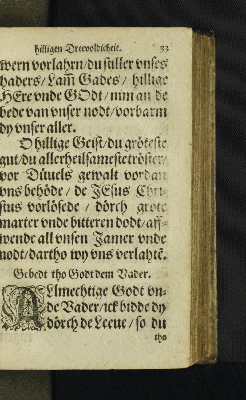 hilligen Dreevoldicheit. 33
wern vorlahrn/ du stiller vnses
haders/ Lam̃ Gades/ hillige
HEre vnde GOdt/ nim an de
bede van vnser nodt/ vorbarm
dy vnser aller.
O hillige Geist/ du gröteste
gut/ du allerheilsameste tröster/
vor Düuels gewalt vordan
vns behöde/ de JEsus Chri-
stus vorlösede/ dörch grote
marter vnde bitteren dodt/ aff-
wende all vnsen Jamer vnde
nodt/ dartho wy vns verlahtẽ.
Gebedt tho Godt dem Vader.
ALmechtige Godt vn-
de Vader/ ick bidde dy
dörch de Leeue/ so du
tho